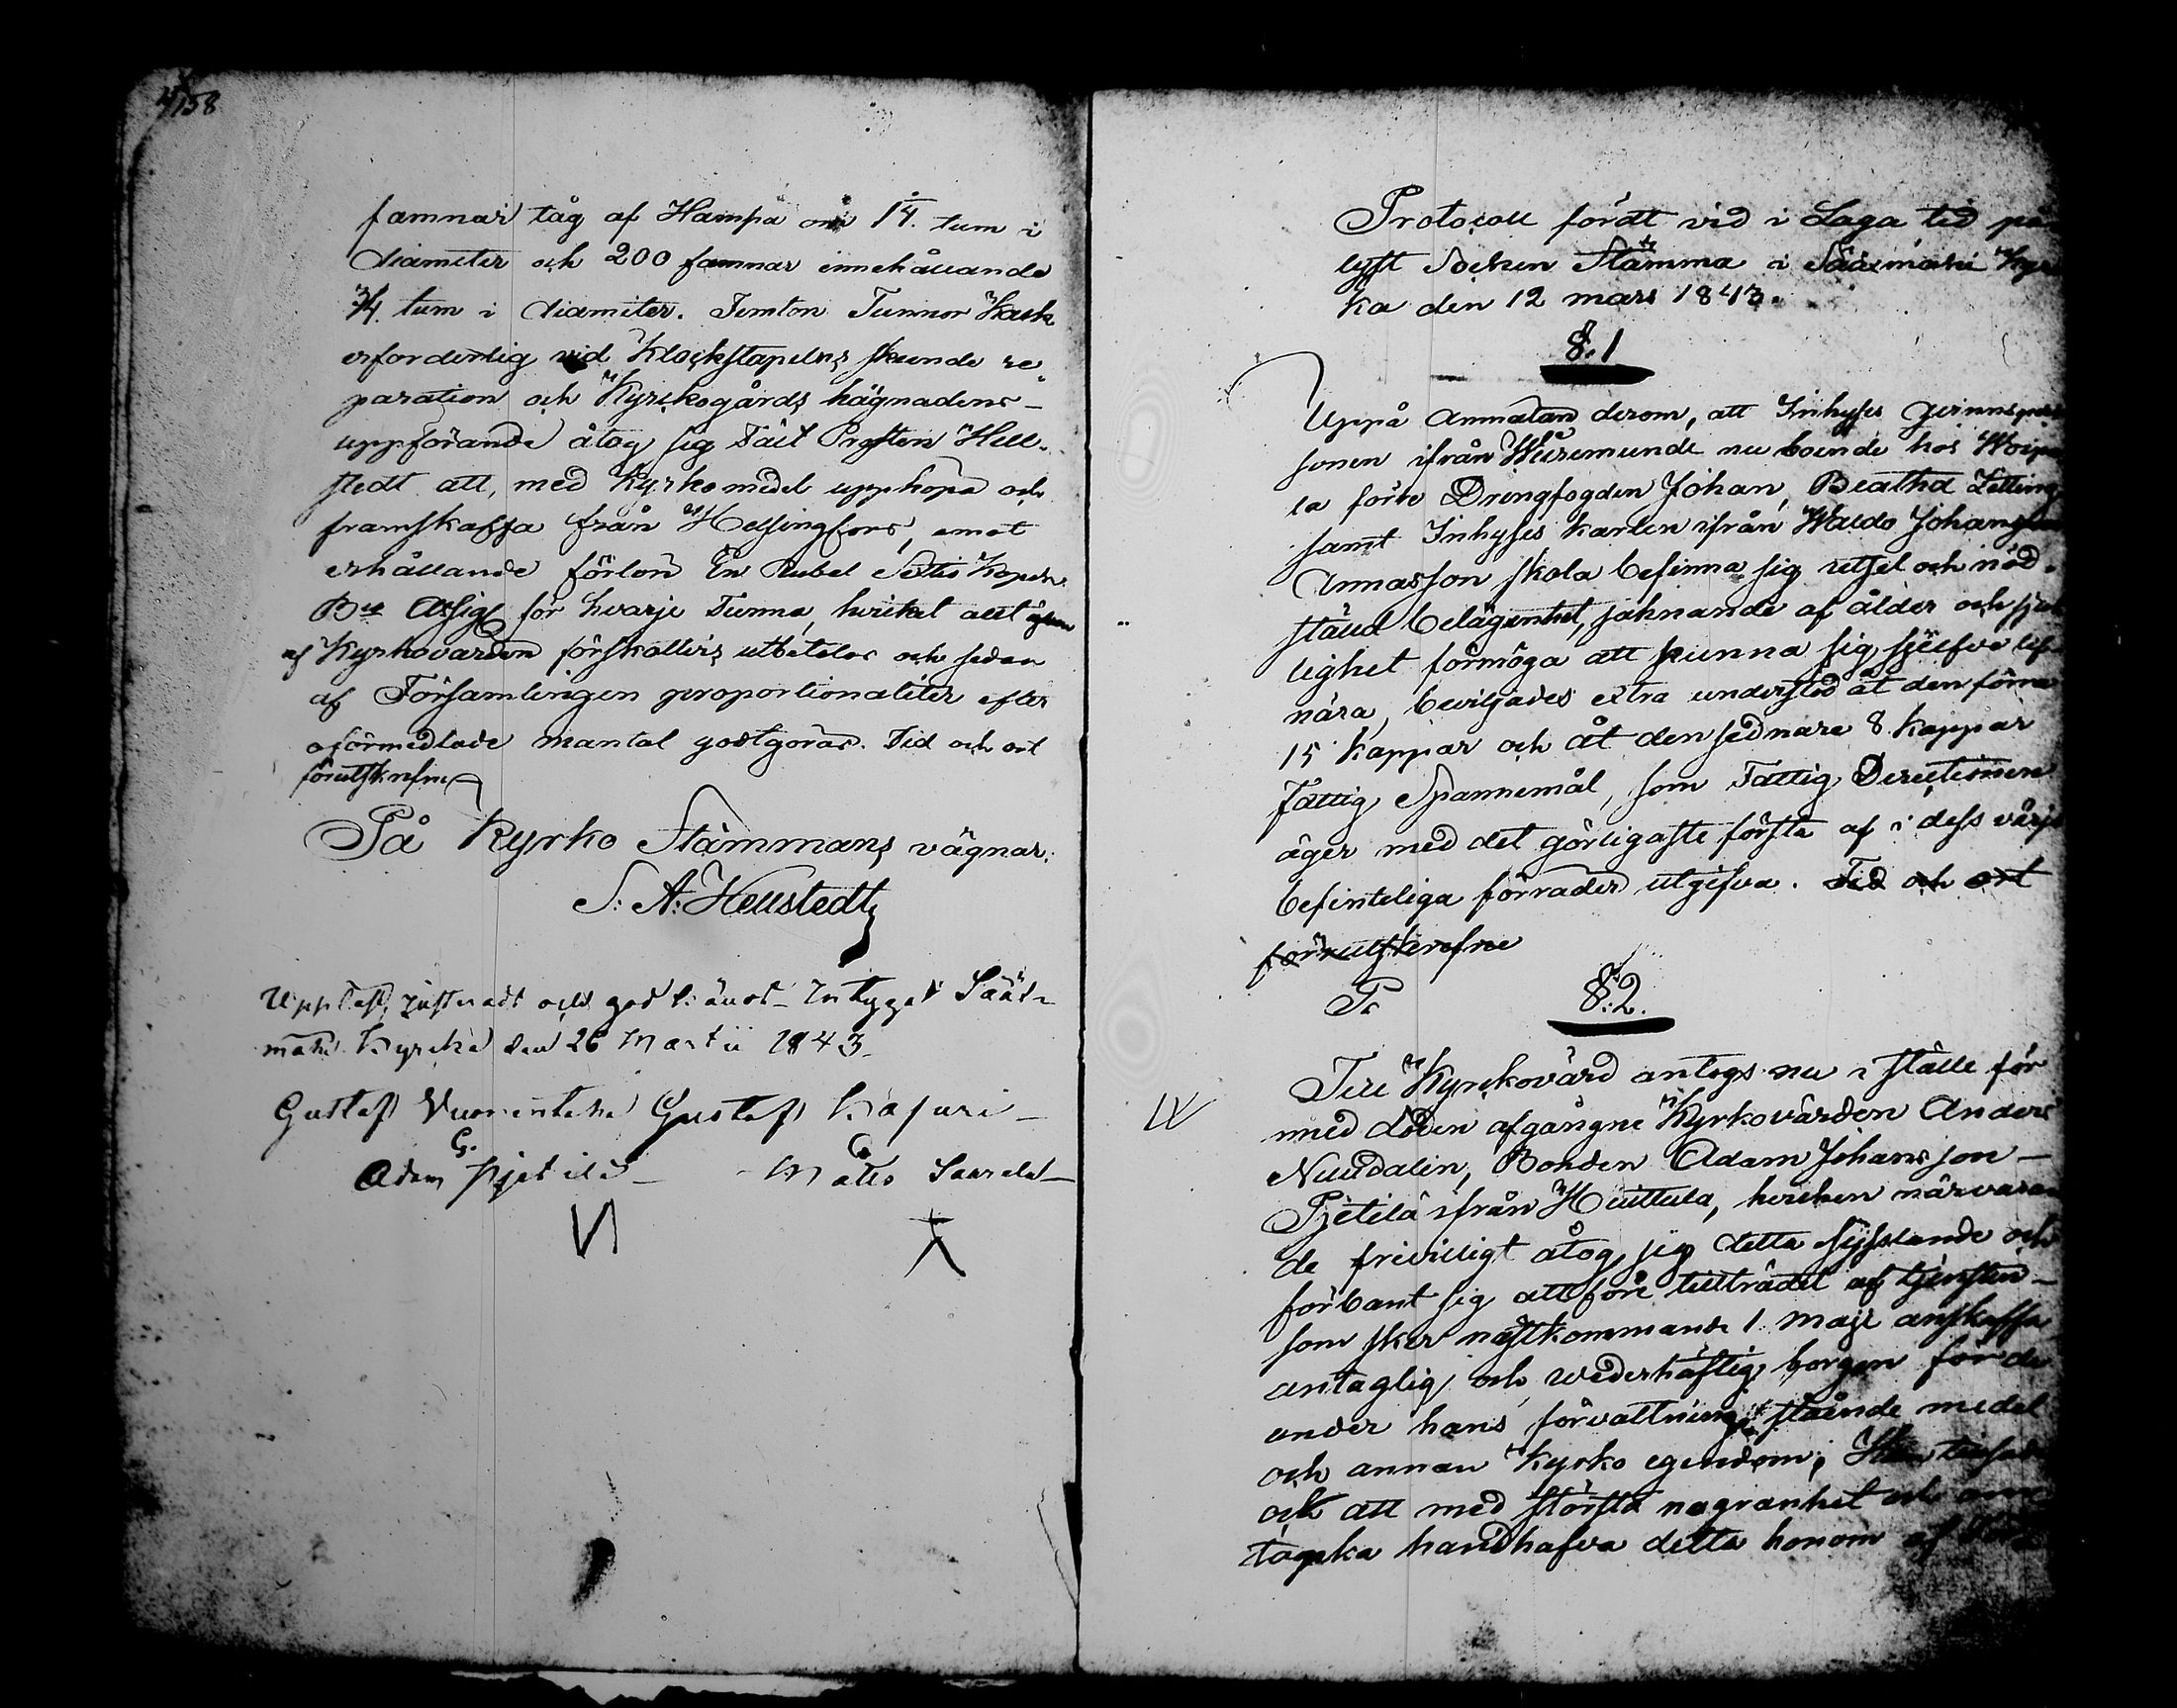 158
famnar tåg af Hampa om 1¼ tum i
diameter och 200 famnar innehållande
3/4 tum i diameter. Femton Tunnor Kalk
erforderlig vid Klockstapelns skeende re-
paration och Kyrckogårds hägnadens
uppförande åtog sig Tit Prosten Hell-
stedt att, med Kyrko medel uppköpa och
framskaffa från Helsingfors, emot
erhållande förlon En Rubel Sextio Kopek
Bco Assig för hvarje Tunna, hvilket allt
af Kyrkovärden förskottvis utbetalas och sedan
af Församlingen proportionaliter efter
oförmedlade mantal godtgöras. Tid och ort
förutskrefne
På Kyrko Stämmans vägnar:
S. A: Hellstedt
Uppläst, justeradt och godkändt Intygat Sääx-
mäki Kyrcka den 26 Martii 1843.
Gustaf Vuorentaka Gustaf Kajuri
Adam G. Pjetilä Matts Saarela
Protocoll fördt vid i Laga tid på
lyst Socken Stämma i Sääxmäki Kyr
ka den 12 mars 1843.
§.1
Uppå Anmälan derom, att Inhyses qvinnsper
sonen ifrån nu boende hos Woipa
la förre Drengfogden Johan, Beatha
samt Inhyses karlen ifrån Waldo Johan
Annasson skola befinna sig utsel och nöd-
ställd belägenhet, saknande af ålder och sjuk
lighet förmöga att kunna sig sjelfva lif-
nära, beviljades extra understöd åt den förra
15 kappar och åt den sednare 8 kappar
fattig Spannemål, som Fattig Directionen
äger med det görligaste första af i dess värjo
befinteliga förråder utgifva. Tid och ort
förutskrefne
Pr §:2.
Till Kyrckovärd antogs nu i ställe för
med döden afgångne Kyrkovärden Anders
Nuudalin, Bonden Adam Johansson
Pjetilä ifrån Huittula, hvilken närvaran
de frivilligt åtog sig detta sysslande och
förbant sig att före tillträdet af tjensten
som sker nästkommande 1 Maji anskaffa
antaglig och vederhäftig borgen för de
under hans förvaltning stående medel
och annan Kyrko egendom;
ock att med största nogranhet och
handhafva detta honom af